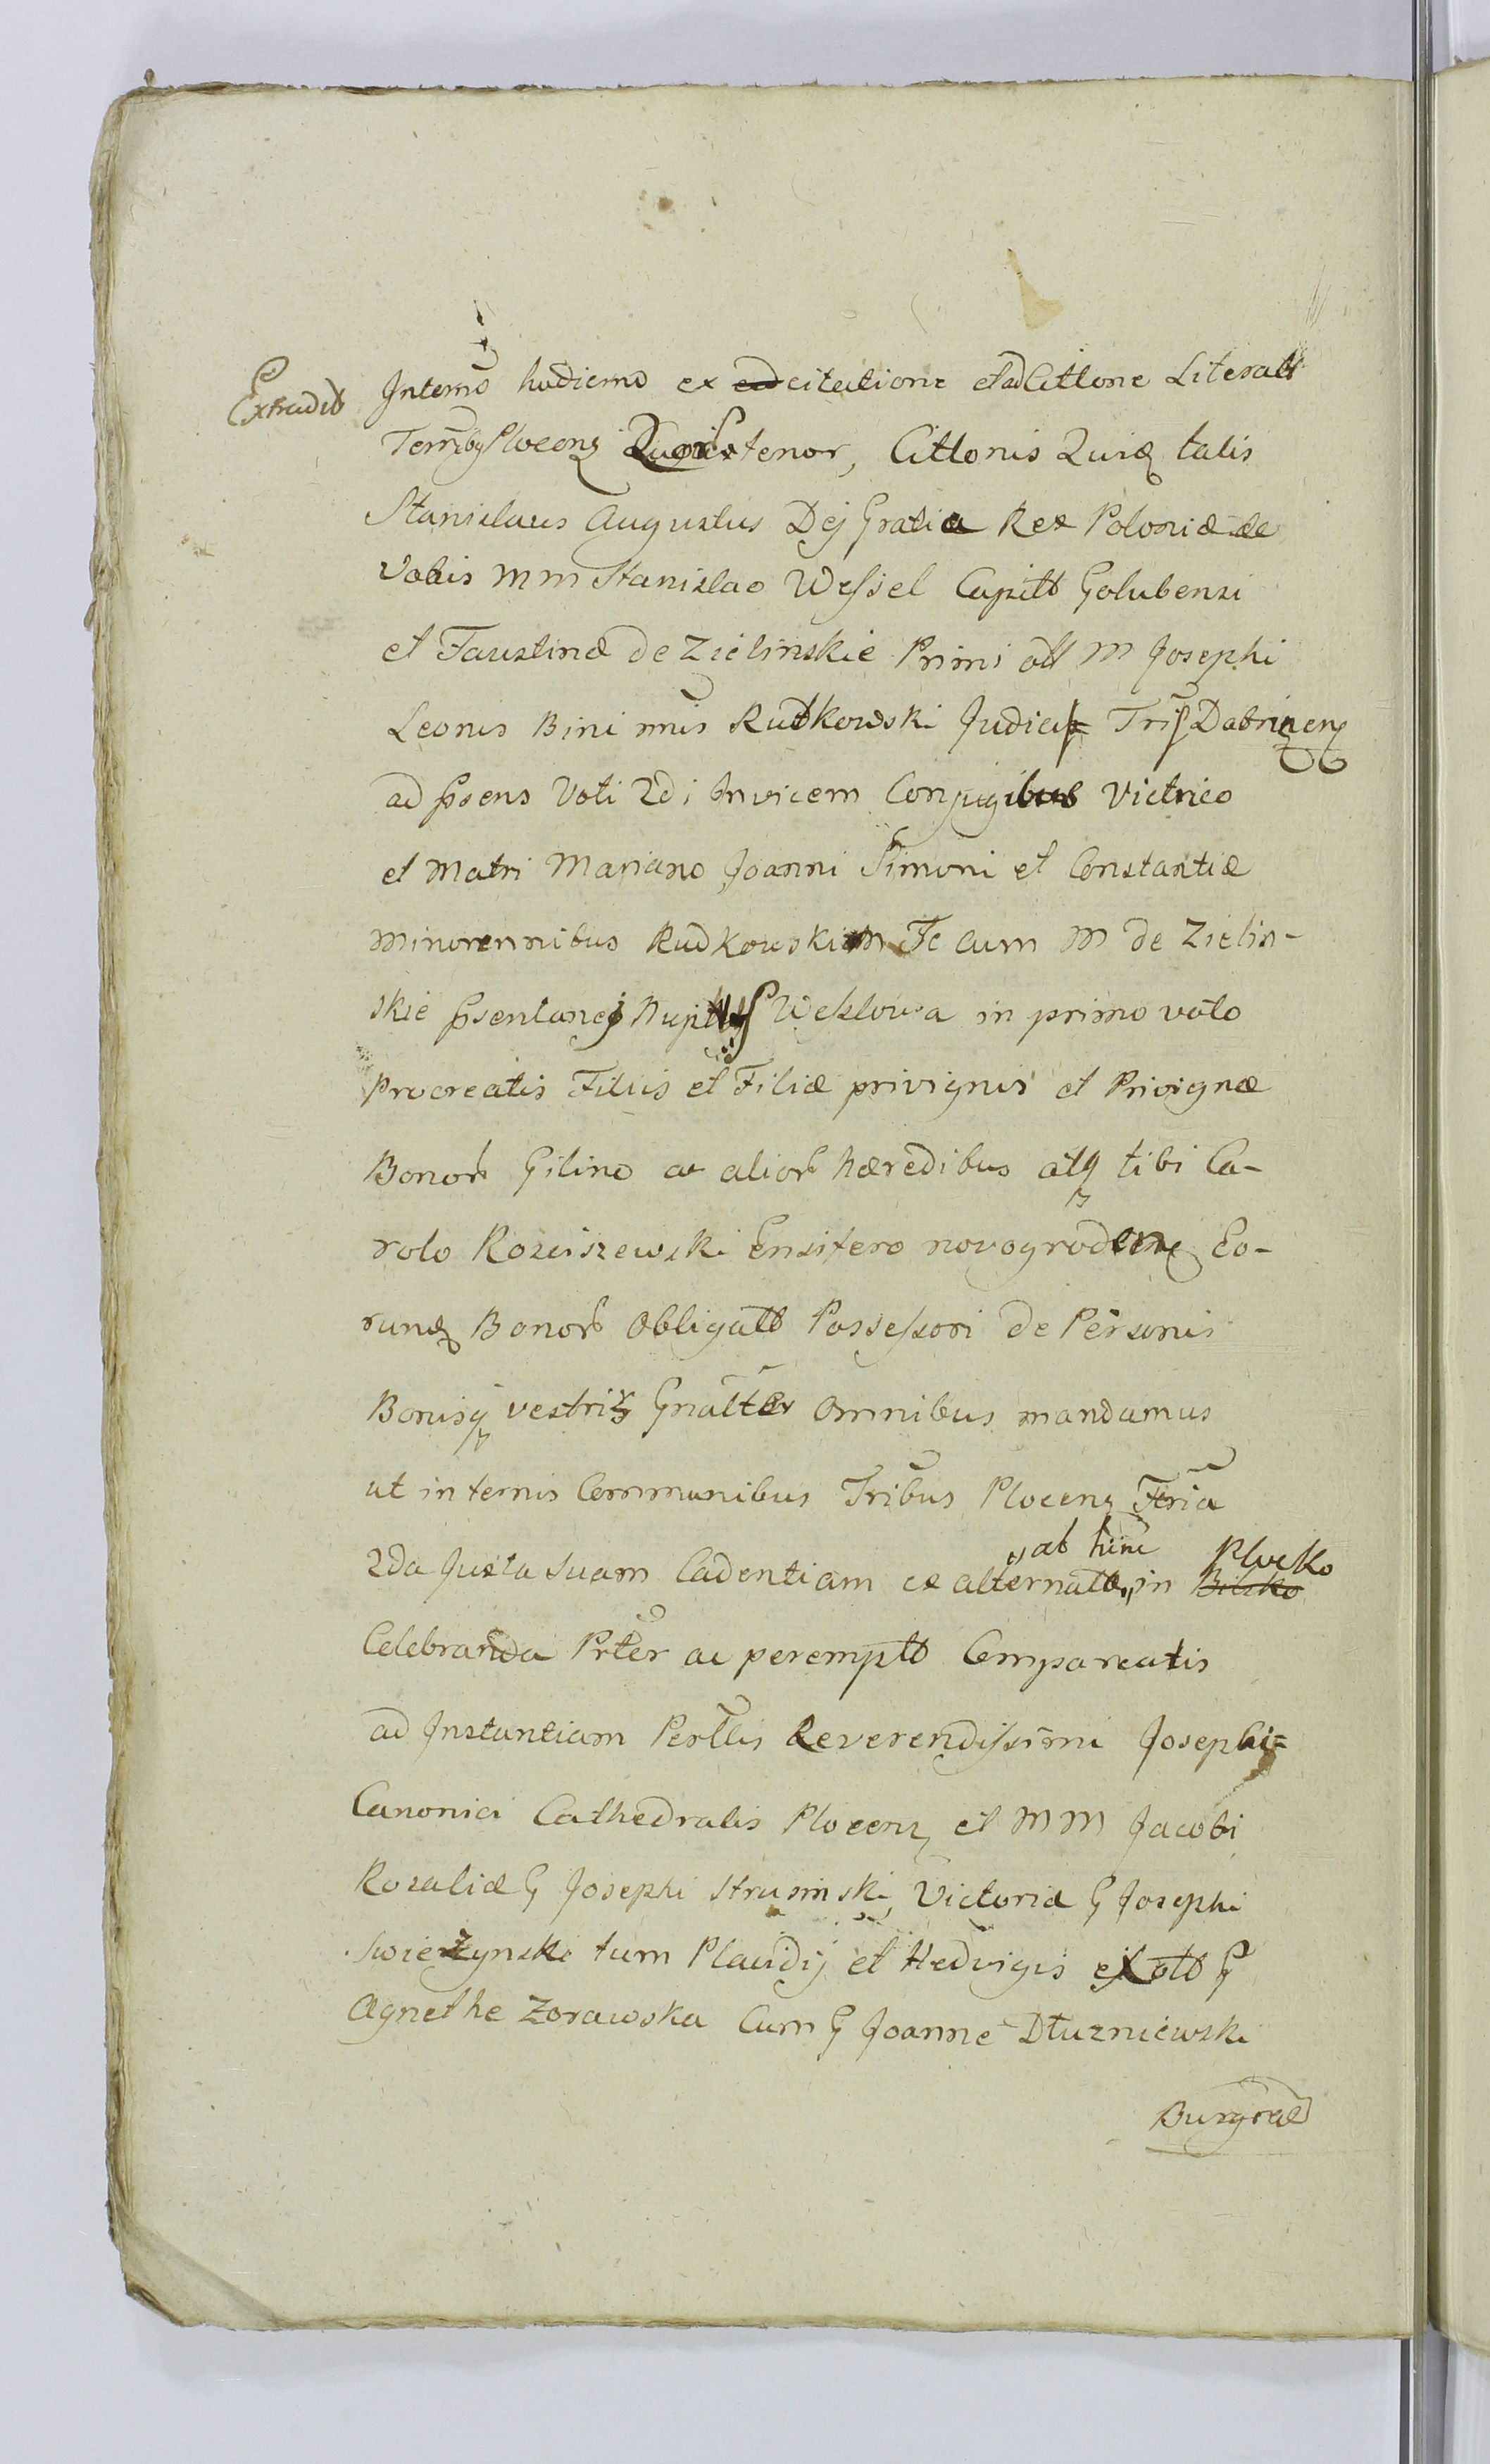 Extradit
Interno hodierno ex citatione et ad Cittone Literatt
Plocenz tenor, Cittonis Quiq talis
Stanislaus Augustus Dej Gratia Rex Poloniæ &c
Vobis MM Stanislao Weſsel Capitt Golubensi
et Faustinæ de Zielinskie Primi ott M Josephi
Leonis Bini mis Rutkowski Judicis Dobrinen
ad psens Voti 2di Invicem Conjugibus Victrico
et Matri Mariano Joanni Simoni et Constantiæ
Minorennibus Rudkowskim Te cum M de Zielin-
skie psentanej Weslowa in primo voto
Procreatis Filiis et Filiæ privignis et Privignæ
Bonor Gilino ac alior hæredibus atq tibi Ca-
rolo Rosciszewski Ensifero novogroden Eo-
runq Bonor Obligatt Posseſsori de Personis
Bonisq vestris Gnatter Omnibus mandamus
ut in ternis Communibus Tribus Plocenz Feria
ab hinc Plocko
2da Juxta Suam Cadentiam ex alternatta in Bilsko
Celebranda Prter ac peremptt Compareatis
ad Instantiam Perllis Reverendiſsimi Josephi
Canonici Cathedralis Plocenz et MM Jacobi
Rozaliæ G Josephi Strusinski Victoriæ G Josephi
Swieżynski tum Placidij et Hedvigis ex ott G
Agnethe Zorawska Cum G Joanne Dłuzniewski
Burgræ